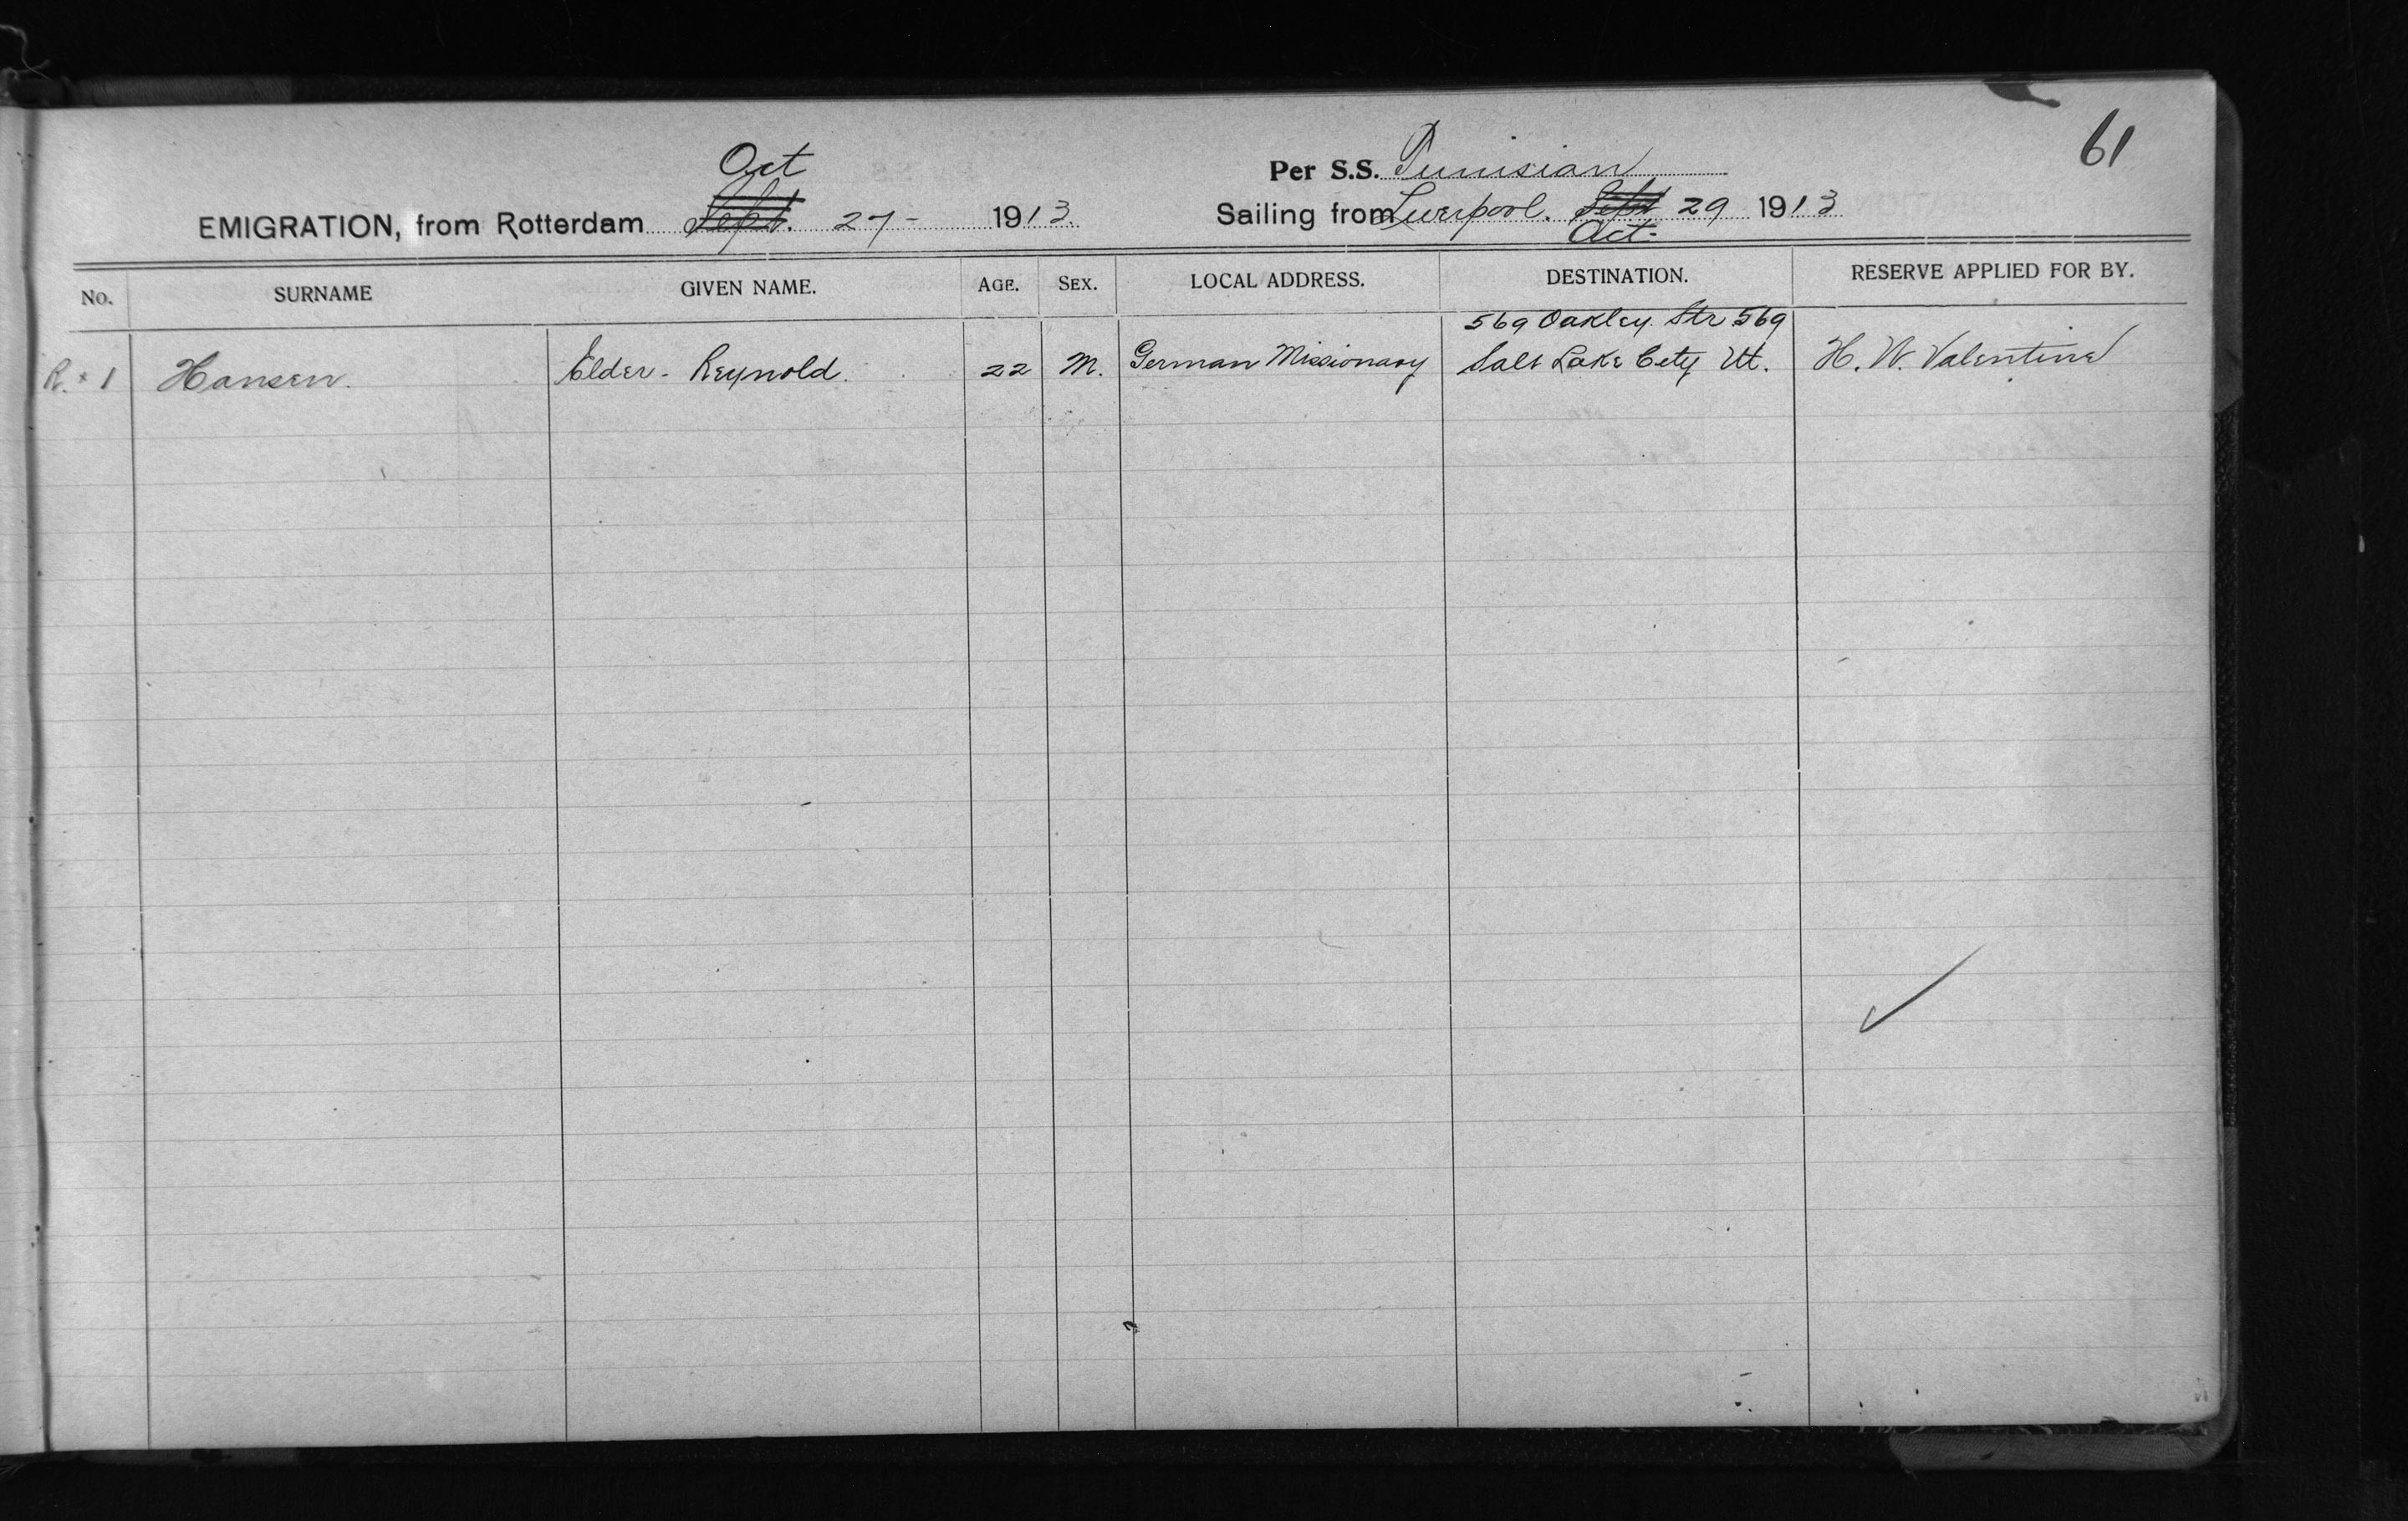 61
Oct
Per S.S. Tunisian
EMIGRATION, from Rotterdam Sept. 27- 1913.
Sailing from Liverpool. Sept 29 1913
Oct.
No. SURNAME GIVEN NAME. AGE. SEX. LOCAL ADDRESS. DESTINATION. RESERVE APPLIED FOR BY.
569 Oakley Str 569
R. 1 Hansen. Elder - Reynold. 22 M. German Missionary Salt Lake City Ut. H. W. Valentine